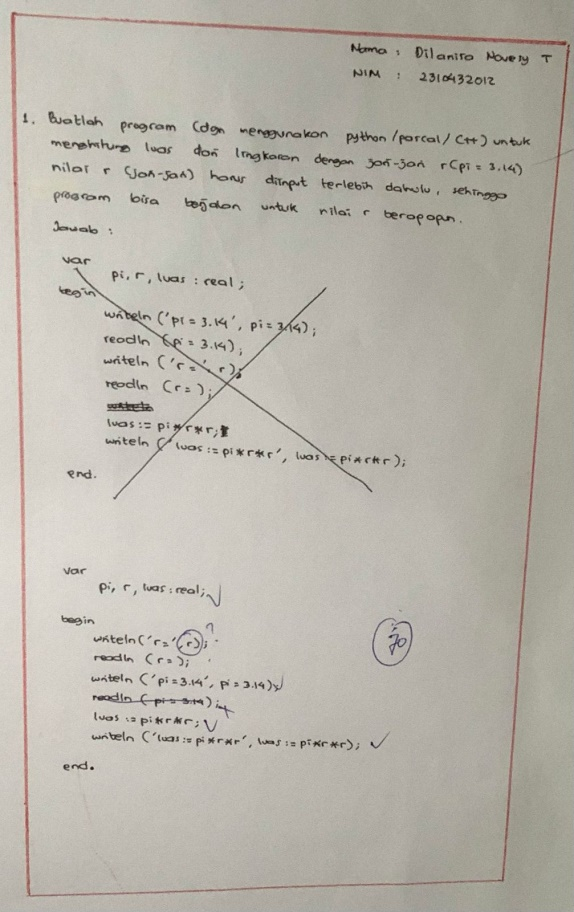 Nama : Dilanira Novery T
NIM : 2310432012
1. Buatlah program (dgn menggunakan python/pascal/C++) untuk
menghitung luas dari lingkaran dengan jari-jari r (pi = 3.14)
nilai r (jari-jari) harus diinput terlebih dahulu, sehingga
program bisa berjalan untuk nilai r berapapun.
Jawab :
var
pi, r, luas : real;
begin
writeln ('pi = 3.14', pi = 3.14);
readln (pi = 3.14);
writeln ('r = ', r);
readln (r = );
luas := pi*r*r;
writeln ('luas := pi*r*r', luas := pi*r*r);
end.
var
pi, r, luas : real;
begin
writeln ('r=', r); ?
readln (r = );
writeln ('pi = 3.14', pi = 3.14);
readln (pi = 3.14);
luas := pi*r*r;
writeln ('luas := pi*r*r', luas := pi*r*r);
end.